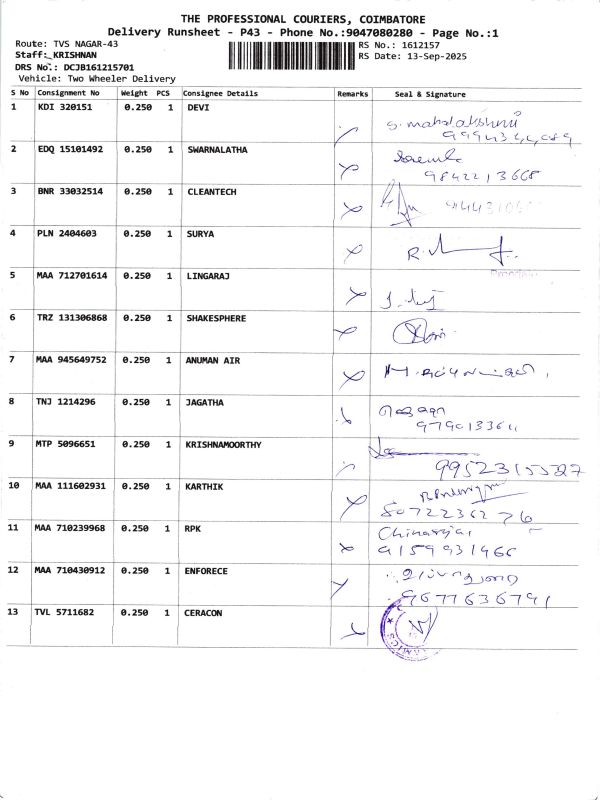 THE PROFESSIONAL COURIERS, COIMBATORE
Delivery Runsheet - P43 - Phone No.:9047080280 - Page No.:1
Route: TVS NAGAR-43
RS No.: 1612157
Staff: KRISHNAN
RS Date: 13-Sep-2025
DRS No.: DCJB161215701
Vehicle: Two Wheeler Delivery
S No Consignment No Weight PCS Consignee Details Remarks Seal & Signature
1 KDI 320151 0.250 1 DEVI
S. mahalakshmi
2 EDQ 15101492 0.250 1 SWARNALATHA
9842213668
3 BNR 33032514 0.250 1 CLEANTECH
4 PLN 2404603 0.250 1 SURYA
5 MAA 712701614 0.250 1 LINGARAJ
6 TRZ 131306868 0.250 1 SHAKESPHERE
7 MAA 945649752 0.250 1 ANUMAN AIR
8 TNJ 1214296 0.250 1 JAGATHA
9 MTP 5096651 0.250 1 KRISHNAMOORTHY
10 MAA 111602931 0.250 1 KARTHIK
8072236276
11 MAA 710239968 0.250 1 RPK
9159931966
12 MAA 710430912 0.250 1 ENFORECE
9677636791
13 TVL 5711682 0.250 1 CERACON